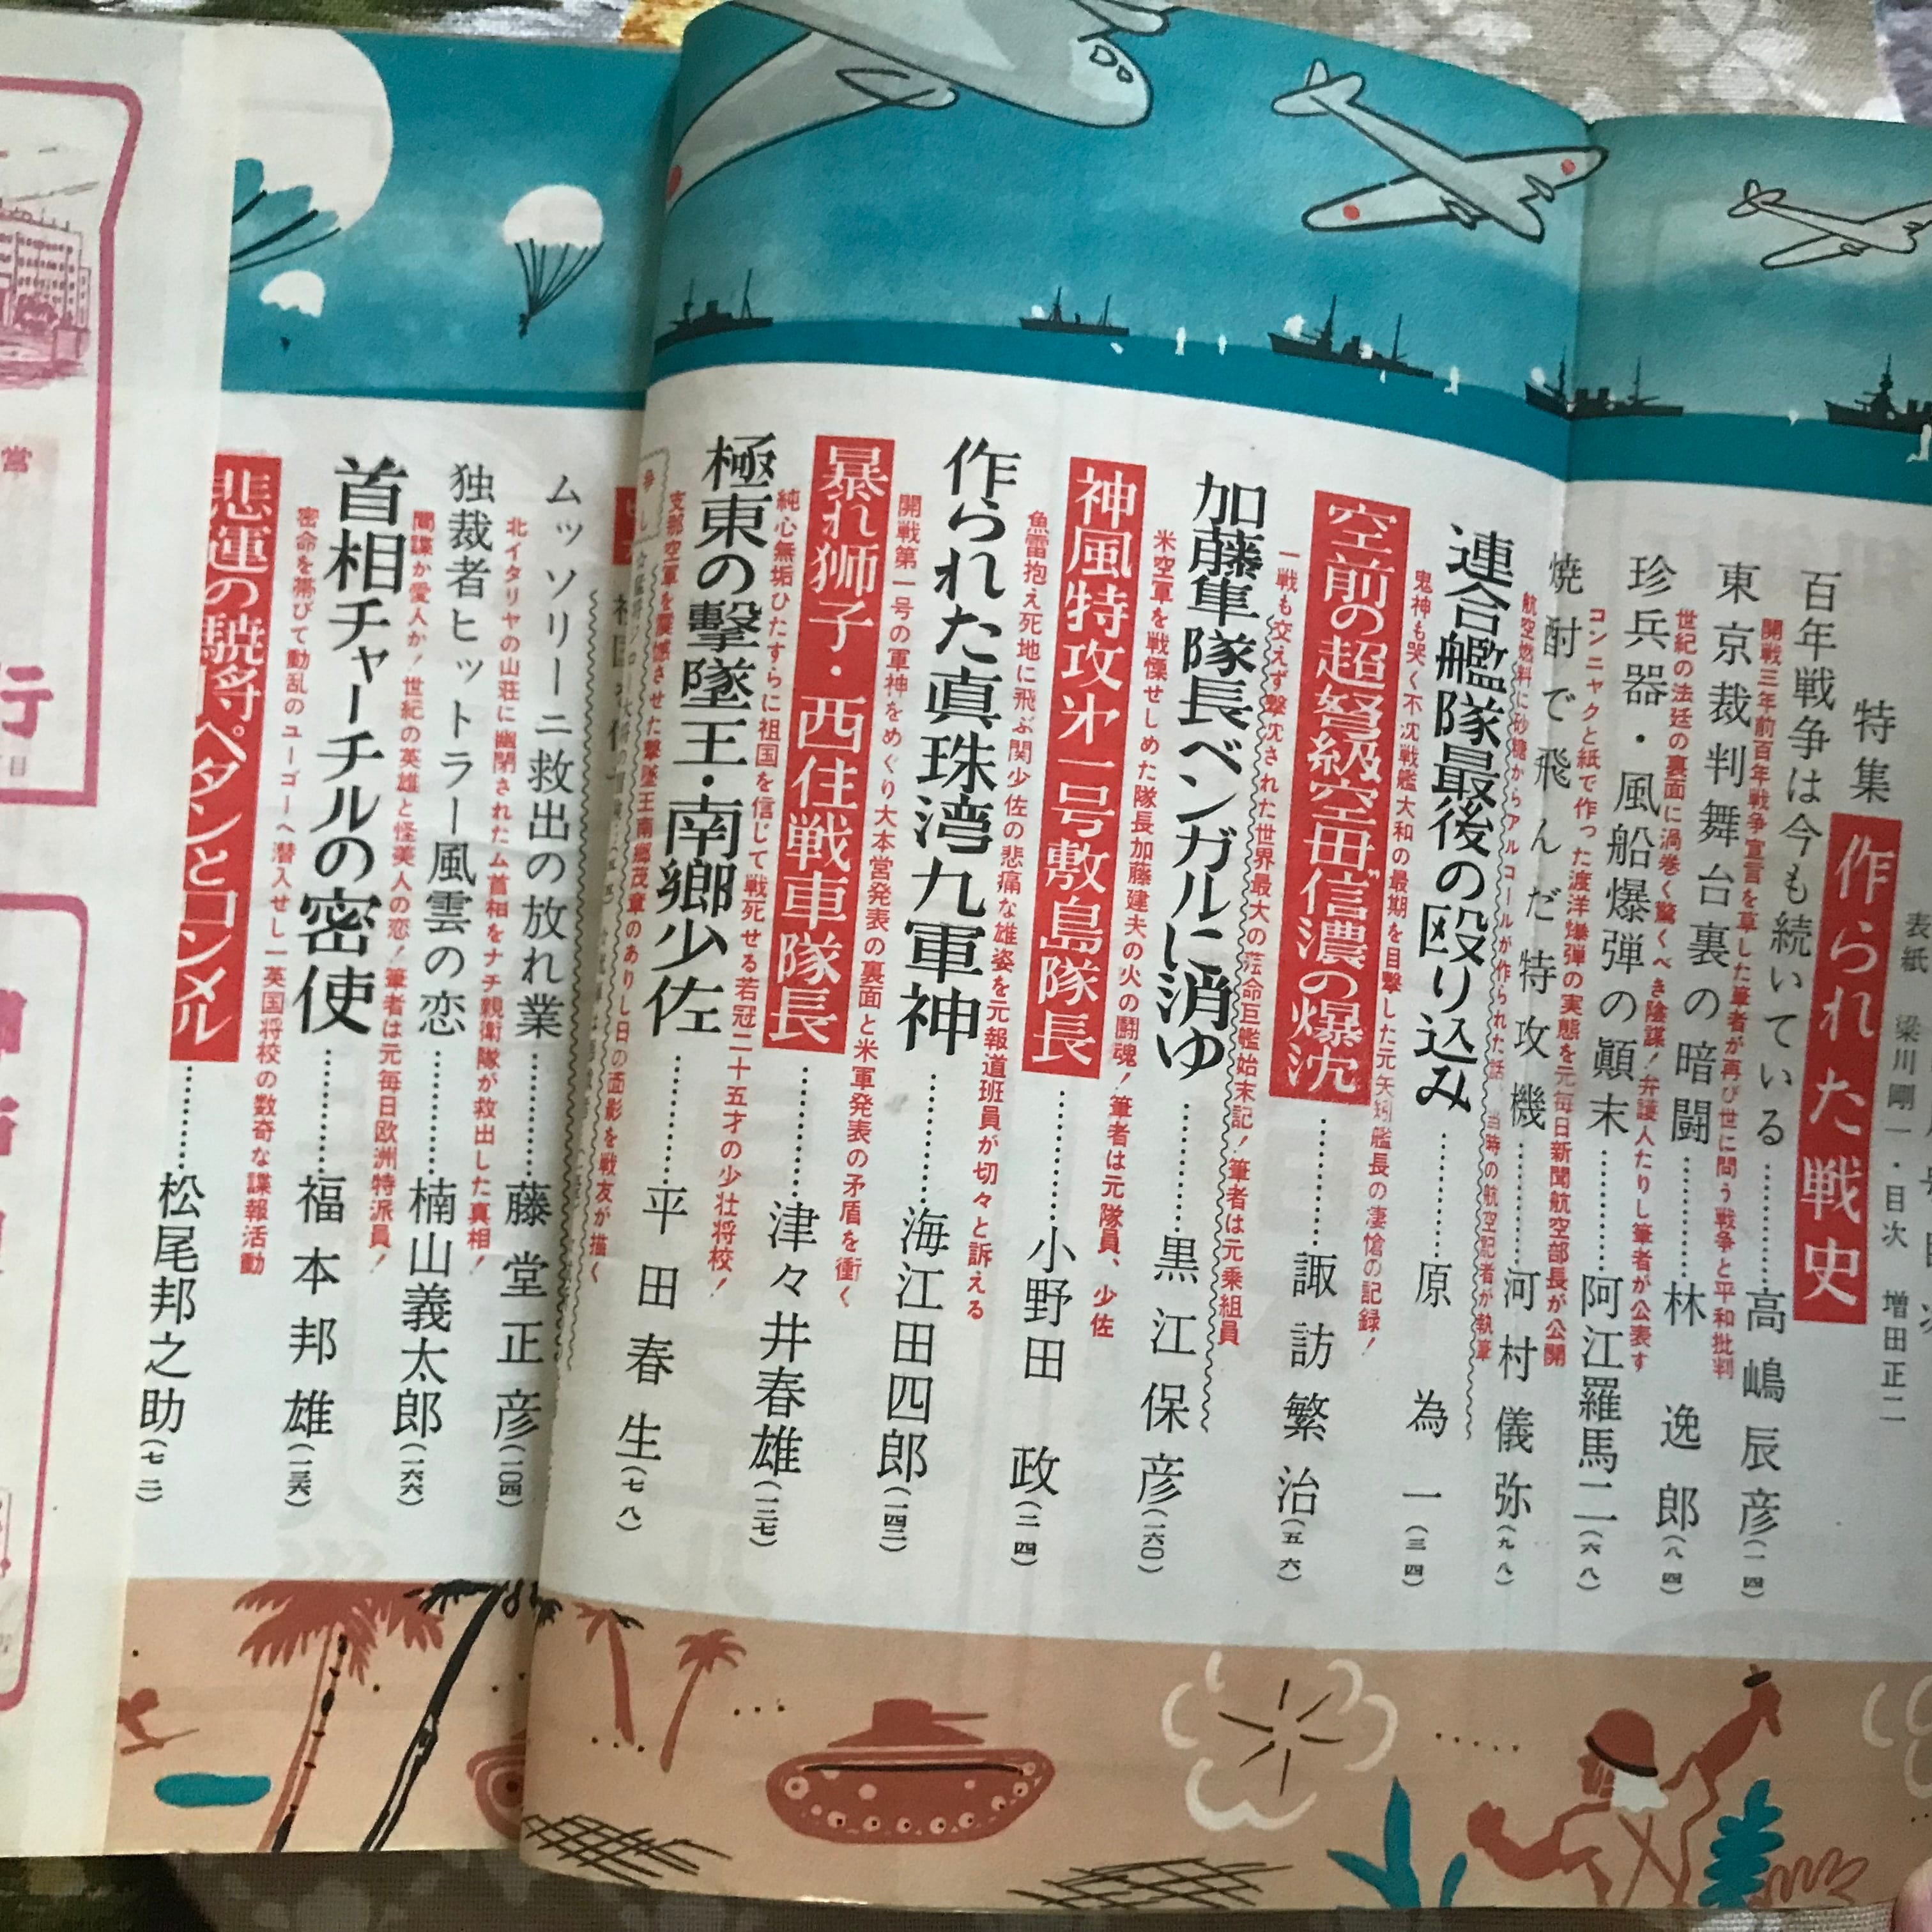 表紙 梁川剛一・目次 増田正二
特集 作られた戦史
百年戦争は今も続いている…………高嶋辰彦(一四)
開戦三年前百年戦争宣言を草した筆者が再び世に問う戦争と平和批判
東京裁判舞台裏の暗闘…………林逸郎(八四)
世紀の法廷の裏面に渦巻く驚くべき陰謀!弁護人たりし筆者が公表す
珍兵器・風船爆弾の顚末…………阿江羅馬二(六八)
コンニャクと紙で作った渡洋爆弾の実態を元毎日新聞航空部長が公開
焼酎で飛んだ特攻機…………河村儀弥(九八)
航空燃料に砂糖からアルコールが作られた話 当時の航空記者が執筆
連合艦隊最後の殴り込み…………原為一(三四)
鬼神も哭く不沈戦艦大和の最期を目撃した元矢矧艦長の凄愴の記録!
空前の超弩級空母信濃の爆沈…………諏訪繁治(五六)
一戦も交えず撃沈された世界最大の薄命巨艦始末記!筆者は元乗組員
加藤隼隊長ベンガルに消ゆ…………黒江保彦(一六〇)
米空軍を戦慄せしめた隊長加藤建夫の火の闘魂!筆者は元隊員、少佐
神風特攻才一号敷島隊長…………小野田政(二四)
魚雷抱え死地に飛ぶ関少佐の悲痛な雄姿を元報道班員が切々と訴える
作られた真珠湾九軍神…………海江田四郎(一四二)
開戦第一号の軍神をめぐり大本営発表の裏面と米軍発表の矛盾を衝く
暴れ獅子・西住戦車隊長…………津々井春雄(一二七)
純心無垢ひたすらに祖国を信じて戦死せる若冠二十五才の少壮将校!
極東の撃墜王・南郷少佐…………平田春生(七八)
支那空軍を震憾させた撃墜王南郷茂章のありし日の面影を戦友が描く
ムッソリーニ救出の放れ業…………藤堂正彦(一〇四)
北イタリヤの山荘に幽閉されたム首相をナチ親衛隊が救出した真相!
独裁者ヒットラー風雲の恋…………楠山義太郎(一六六)
間諜か愛人か!世紀の英雄と怪美人の恋!筆者は元毎日欧洲特派員!
首相チャーチルの密使…………福本邦雄(一三六)
密命を帯びて動乱のユーゴーへ潜入せし一英国将校の数奇な諜報活動
悲運の驍将ペタンとロンメル…………松尾邦之助(七二)
営
行